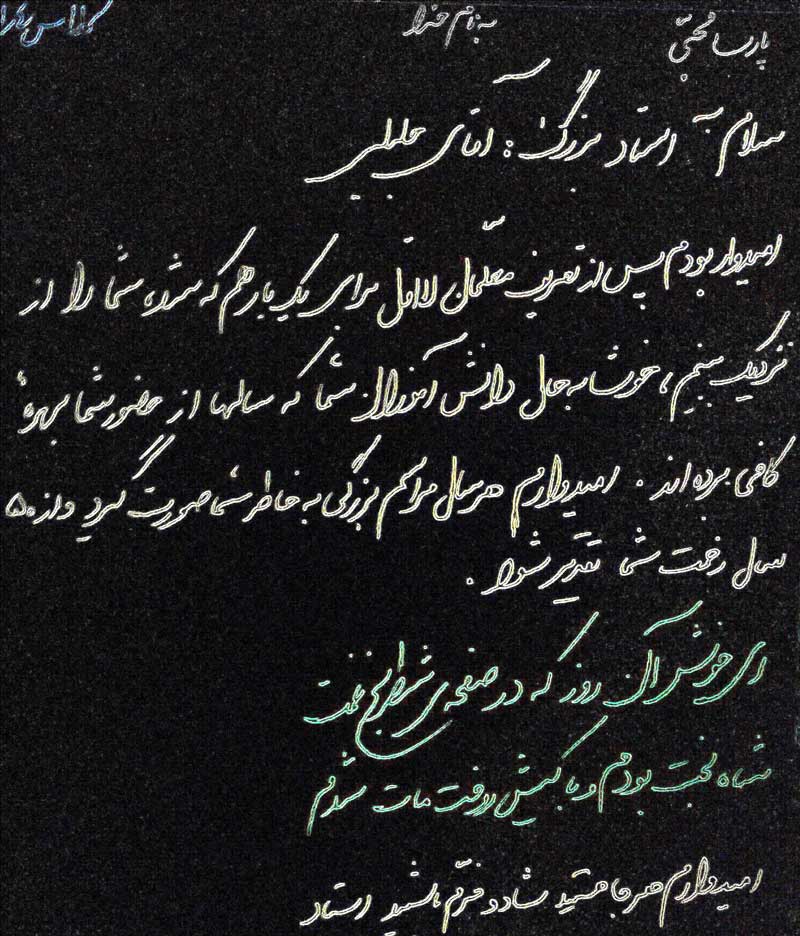 به نام خدا
پارسا محبّی
کلاس
سلام به استاد بزرگ: آقای جلیلی
امیدوار بودم پس از تعریف معلّمان لااقل برای یک بار هم که شده، شما را از
نزدیک ببینم، خوشا به حال دانش آموزان شما که سالها از حضور شما بهره‌ٔ
کافی برده اند. امیدوارم هرسال مراسم بزرگی به خاطر شما صورت گیرد و از ۵۰
سال زحمت شما تقدیر شود.
ای خوش آن روز که در صفحه ی شطرنج غمت
شاه نجیب بودم و با کیش رخت مات شدم
امیدوارم هرجا هستید شاد و خرّم باشید استاد